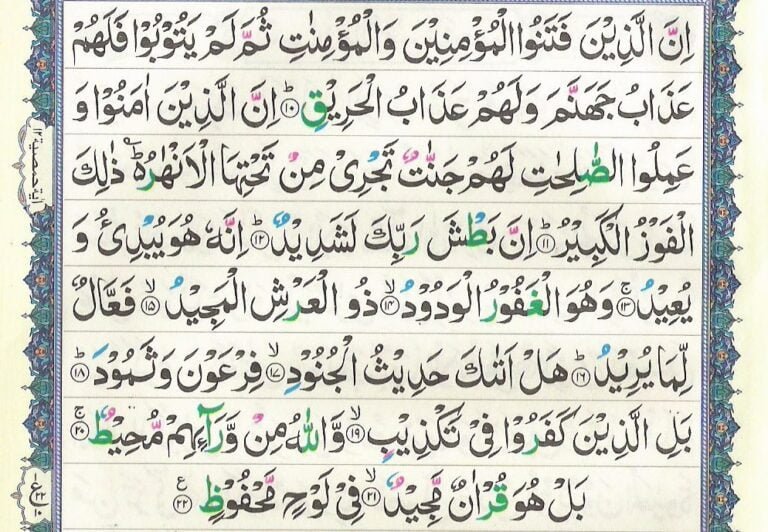 اِنَّ الَّذِيْنَ فَتَنُوا الْمُؤْمِنِيْنَ وَالْمُؤْمِنٰتِ ثُمَّ لَمْ يَتُوْبُوْا فَلَهُمْ
عَذَابُ جَهَنَّمَ وَلَهُمْ عَذَابُ الْحَرِيْقِ ؕ﴿۱۰﴾ اِنَّ الَّذِيْنَ اٰمَنُوْا وَ
عَمِلُوا الصّٰلِحٰتِ لَهُمْ جَنّٰتٌ تَجْرِىْ مِنْ تَحْتِهَا الْاَنْهٰرُ ؕ ذٰلِكَ
الْفَوْزُ الْكَبِيْرُ ؕ﴿۱۱﴾ اِنَّ بَطْشَ رَبِّكَ لَشَدِيْدٌ ؕ﴿۱۲﴾ اِنَّهٗ هُوَ يُبْدِئُ وَ
يُعِيْدُ ۚ﴿۱۳﴾ وَهُوَ الْغَفُوْرُ الْوَدُوْدُ ۙ﴿۱۴﴾ ذُو الْعَرْشِ الْمَجِيْدُ ۙ﴿۱۵﴾ فَعَّالٌ
لِّمَا يُرِيْدُ ؕ﴿۱۶﴾ هَلْ اَتٰىكَ حَدِيْثُ الْجُنُوْدِ ۙ﴿۱۷﴾ فِرْعَوْنَ وَثَمُوْدَ ؕ﴿۱۸﴾
بَلِ الَّذِيْنَ كَفَرُوْا فِىْ تَكْذِيْبٍ ۙ﴿۱۹﴾ وَّاللّٰهُ مِنْ وَّرَآئِهِمْ مُّحِيْطٌ ۚ﴿۲۰﴾
بَلْ هُوَ قُرْاٰنٌ مَّجِيْدٌ ۙ﴿۲۱﴾ فِىْ لَوْحٍ مَّحْفُوْظٍ ﴿۲۲﴾ ع